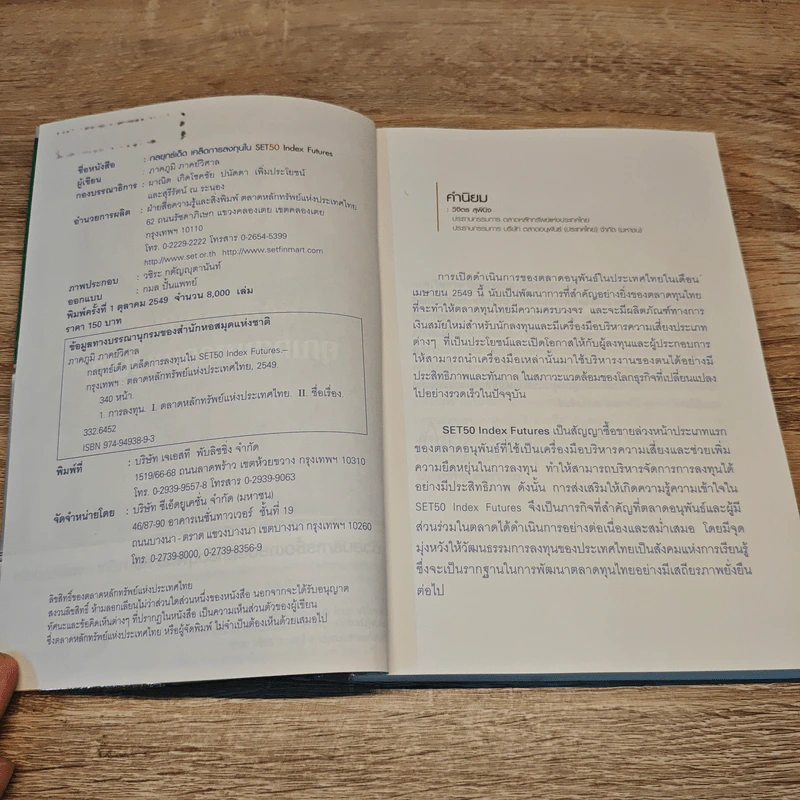 ชื่อหนังสือ : กลยุทธ์เด็ด เคล็ดการลงทุนใน SET50 Index Futures
ผู้เขียน : ภาคภูมิ ภาคย์วิศาล
กองบรรณาธิการ : ผาณิต เกิดโชคชัย ปนัดดา เพิ่มประโยชน์
และสุรีรัตน์ ณ ระนอง
อำนวยการผลิต : ฝ่ายสื่อความรู้และสิ่งพิมพ์ ตลาดหลักทรัพย์แห่งประเทศไทย
62 ถนนรัชดาภิเษก แขวงคลองเตย เขตคลองเตย
กรุงเทพฯ 10110
โทร. 0-2229-2222 โทรสาร 0-2654-5399
http://www.set.or.th http://www.setfinmart.com
ภาพประกอบ : วชิระ กตัญญุตานันท์
ออกแบบ : กมล ปั้นแพทย์
พิมพ์ครั้งที่ 1 ตุลาคม 2549 จำนวน 8,000 เล่ม
ราคา 150 บาท
ข้อมูลทางบรรณานุกรมของสำนักหอสมุดแห่งชาติ
ภาคภูมิ ภาคย์วิศาล
กลยุทธ์เด็ด เคล็ดการลงทุนใน SET50 Index Futures.–
กรุงเทพฯ : ตลาดหลักทรัพย์แห่งประเทศไทย, 2549.
340 หน้า.
1. การลงทุน. I. ตลาดหลักทรัพย์แห่งประเทศไทย. II. ชื่อเรื่อง.
332.6452
ISBN 974-94938-9-3
พิมพ์ที่ : บริษัท เจเอสที พับลิชชิ่ง จำกัด
1519/66-68 ถนนลาดพร้าว เขตห้วยขวาง กรุงเทพฯ 10310
โทร. 0-2939-9557-8 โทรสาร 0-2939-9063
จัดจำหน่ายโดย : บริษัท ซีเอ็ดยูเคชั่น จำกัด (มหาชน)
46/87-90 อาคารเนชั่นทาวเวอร์ ชั้นที่ 19
ถนนบางนา - ตราด แขวงบางนา เขตบางนา กรุงเทพฯ 10260
โทร. 0-2739-8000, 0-2739-8356-9
ลิขสิทธิ์ของตลาดหลักทรัพย์แห่งประเทศไทย
สงวนลิขสิทธิ์ ห้ามลอกเลียนไม่ว่าส่วนใดส่วนหนึ่งของหนังสือ นอกจากจะได้รับอนุญาต
ทัศนะและข้อคิดเห็นต่างๆ ที่ปรากฏในหนังสือ เป็นความเห็นส่วนตัวของผู้เขียน
ซึ่งตลาดหลักทรัพย์แห่งประเทศไทย หรือผู้จัดพิมพ์ ไม่จำเป็นต้องเห็นด้วยเสมอไป
คำนิยม
: วิจิตร สุพินิจ
ประธานกรรมการ ตลาดหลักทรัพย์แห่งประเทศไทย
ประธานกรรมการ บริษัท ตลาดอนุพันธ์ (ประเทศไทย) จำกัด (มหาชน)
การเปิดดำเนินการของตลาดอนุพันธ์ในประเทศไทยในเดือน
เมษายน 2549 นี้ นับเป็นพัฒนาการที่สำคัญอย่างยิ่งของตลาดทุนไทย
ที่จะทำให้ตลาดทุนไทยมีความครบวงจร และจะมีผลิตภัณฑ์ทางการ
เงินสมัยใหม่สำหรับนักลงทุนและมีเครื่องมือบริหารความเสี่ยงประเภท
ต่างๆ ที่เป็นประโยชน์และเปิดโอกาสให้กับผู้ลงทุนและผู้ประกอบการ
ให้สามารถนำเครื่องมือเหล่านั้นมาใช้บริหารงานของตนได้อย่างมี
ประสิทธิภาพและทันกาล ในสภาวะแวดล้อมของโลกธุรกิจที่เปลี่ยนแปลง
ไปอย่างรวดเร็วในปัจจุบัน
SET50 Index Futures เป็นสัญญาซื้อขายล่วงหน้าประเภทแรก
ของตลาดอนุพันธ์ที่ใช้เป็นเครื่องมือบริหารความเสี่ยงและช่วยเพิ่ม
ความยืดหยุ่นในการลงทุน ทำให้สามารถบริหารจัดการการลงทุนได้
อย่างมีประสิทธิภาพ ดังนั้น การส่งเสริมให้เกิดความรู้ความเข้าใจใน
SET50 Index Futures จึงเป็นภารกิจที่สำคัญที่ตลาดอนุพันธ์และผู้มี
ส่วนร่วมในตลาดได้ดำเนินการอย่างต่อเนื่องและสม่ำเสมอ โดยมีจุด
มุ่งหวังให้วัฒนธรรมการลงทุนของประเทศไทยเป็นสังคมแห่งการเรียนรู้
ซึ่งจะเป็นรากฐานในการพัฒนาตลาดทุนไทยอย่างมีเสถียรภาพยั่งยืน
ต่อไป